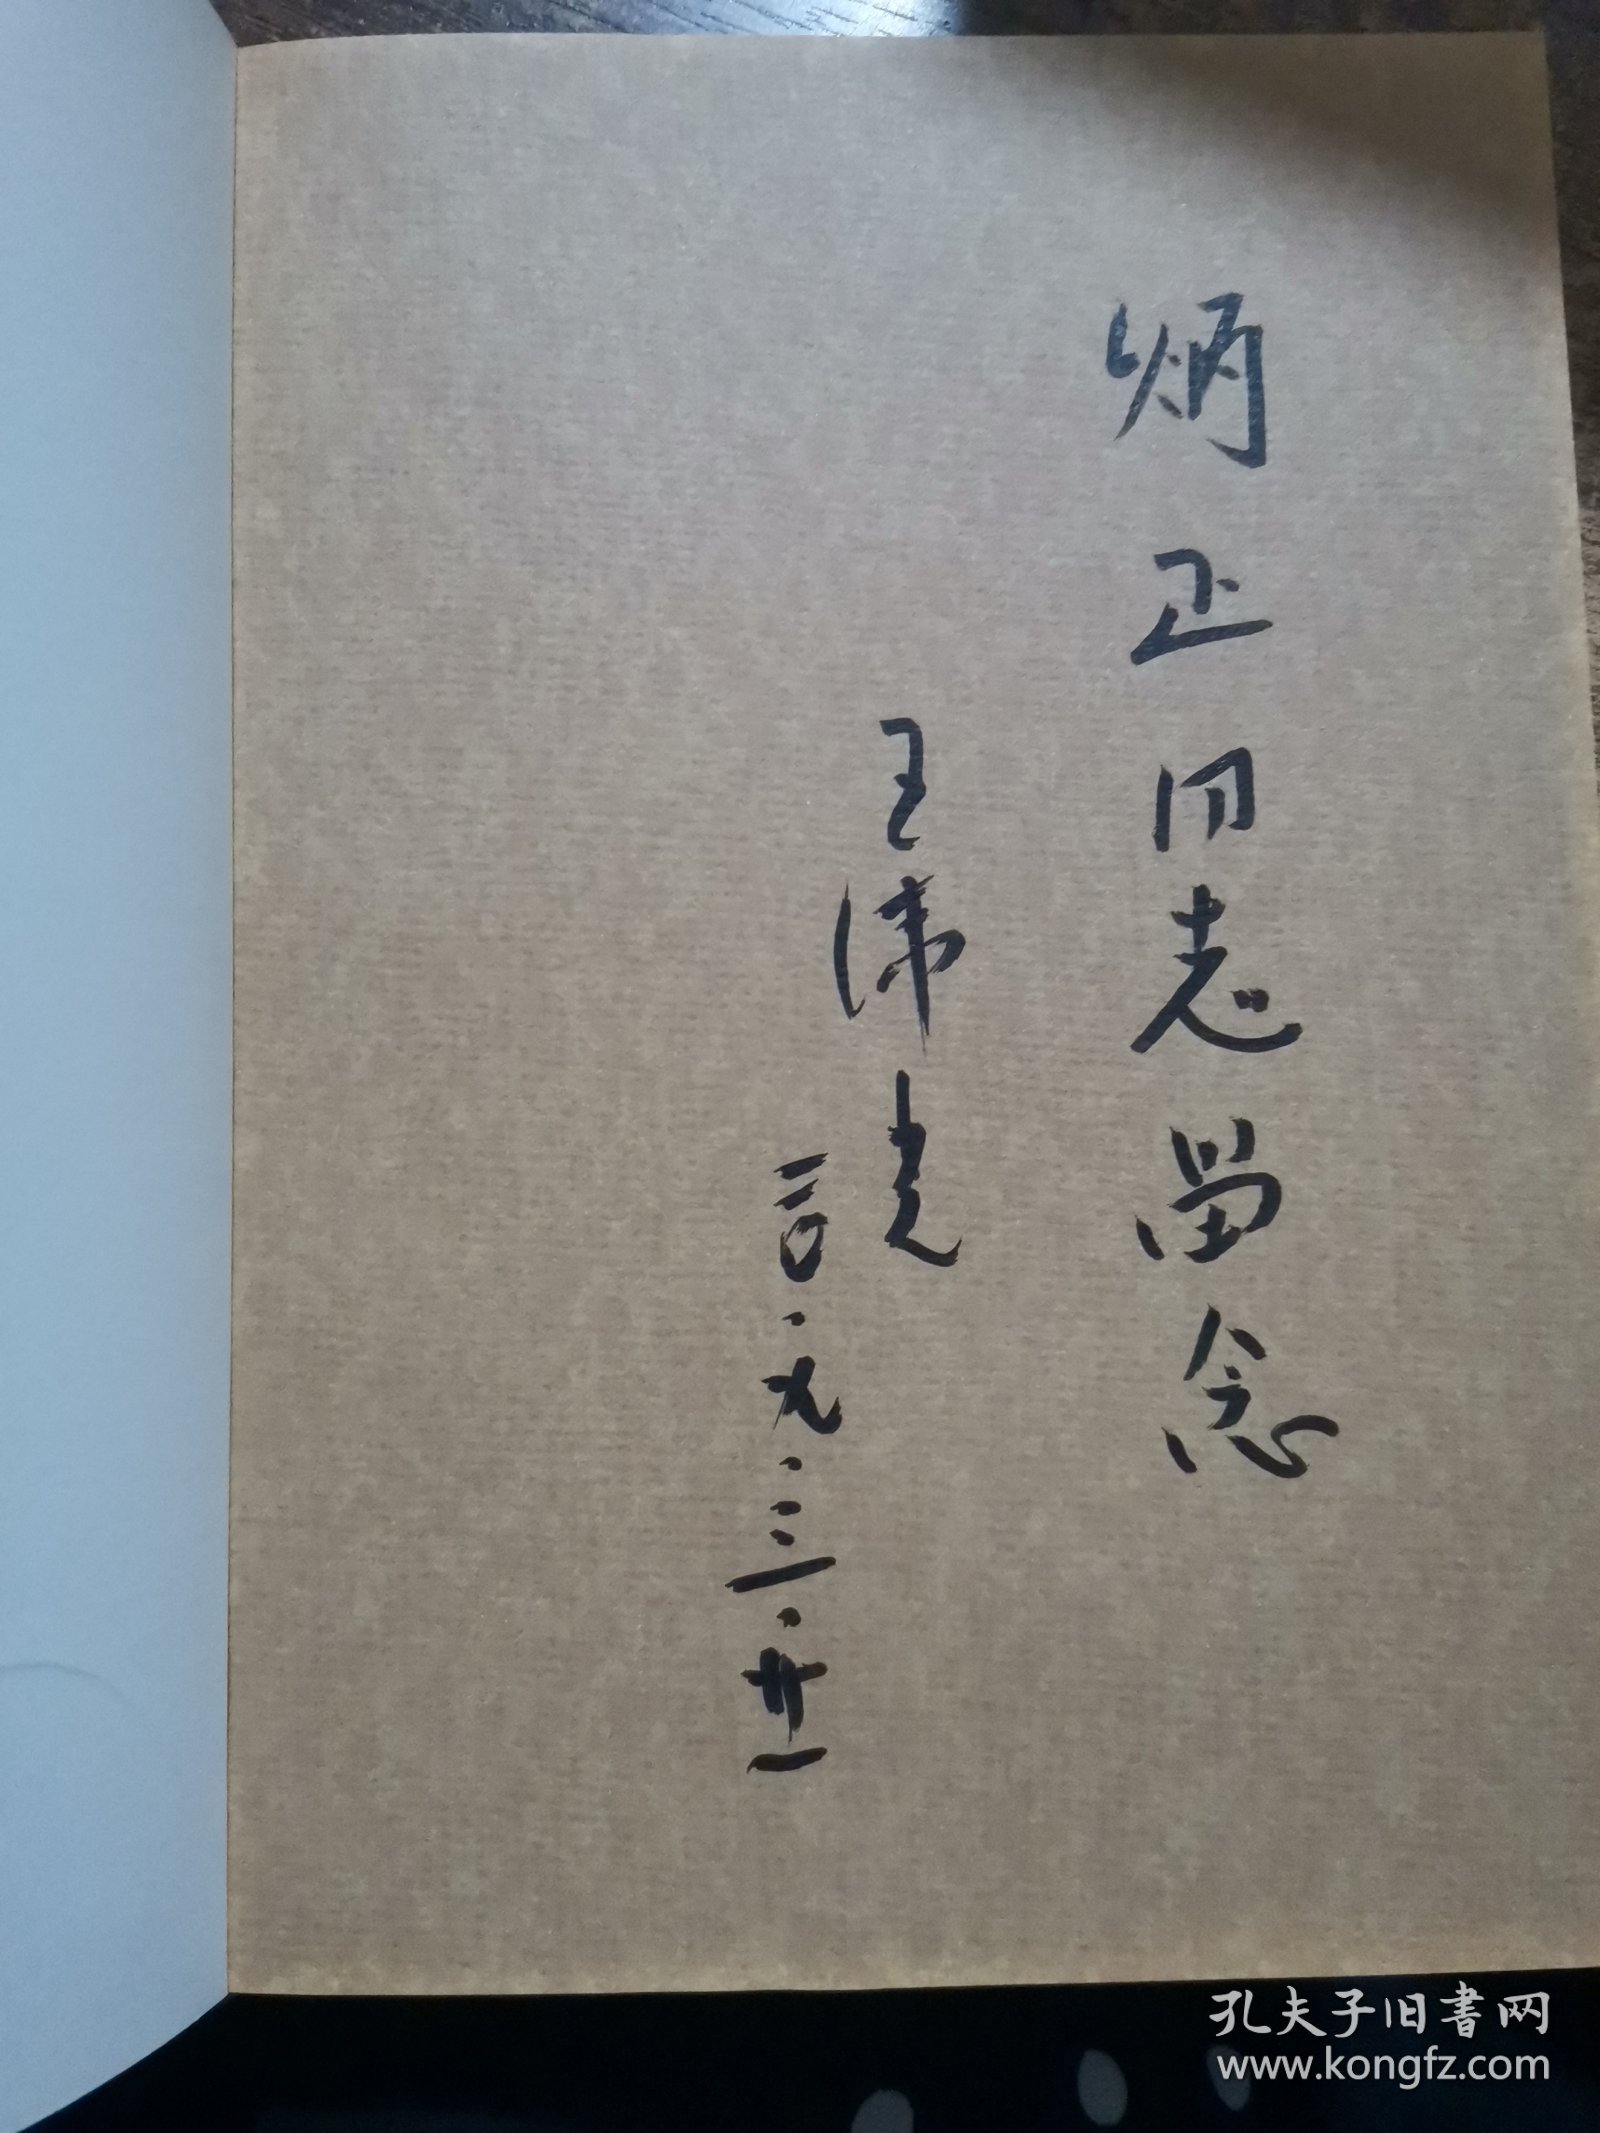 炳正同志留念
王伟光
二〇〇九·三·廿一
孔夫子旧書网
www.kongfz.com